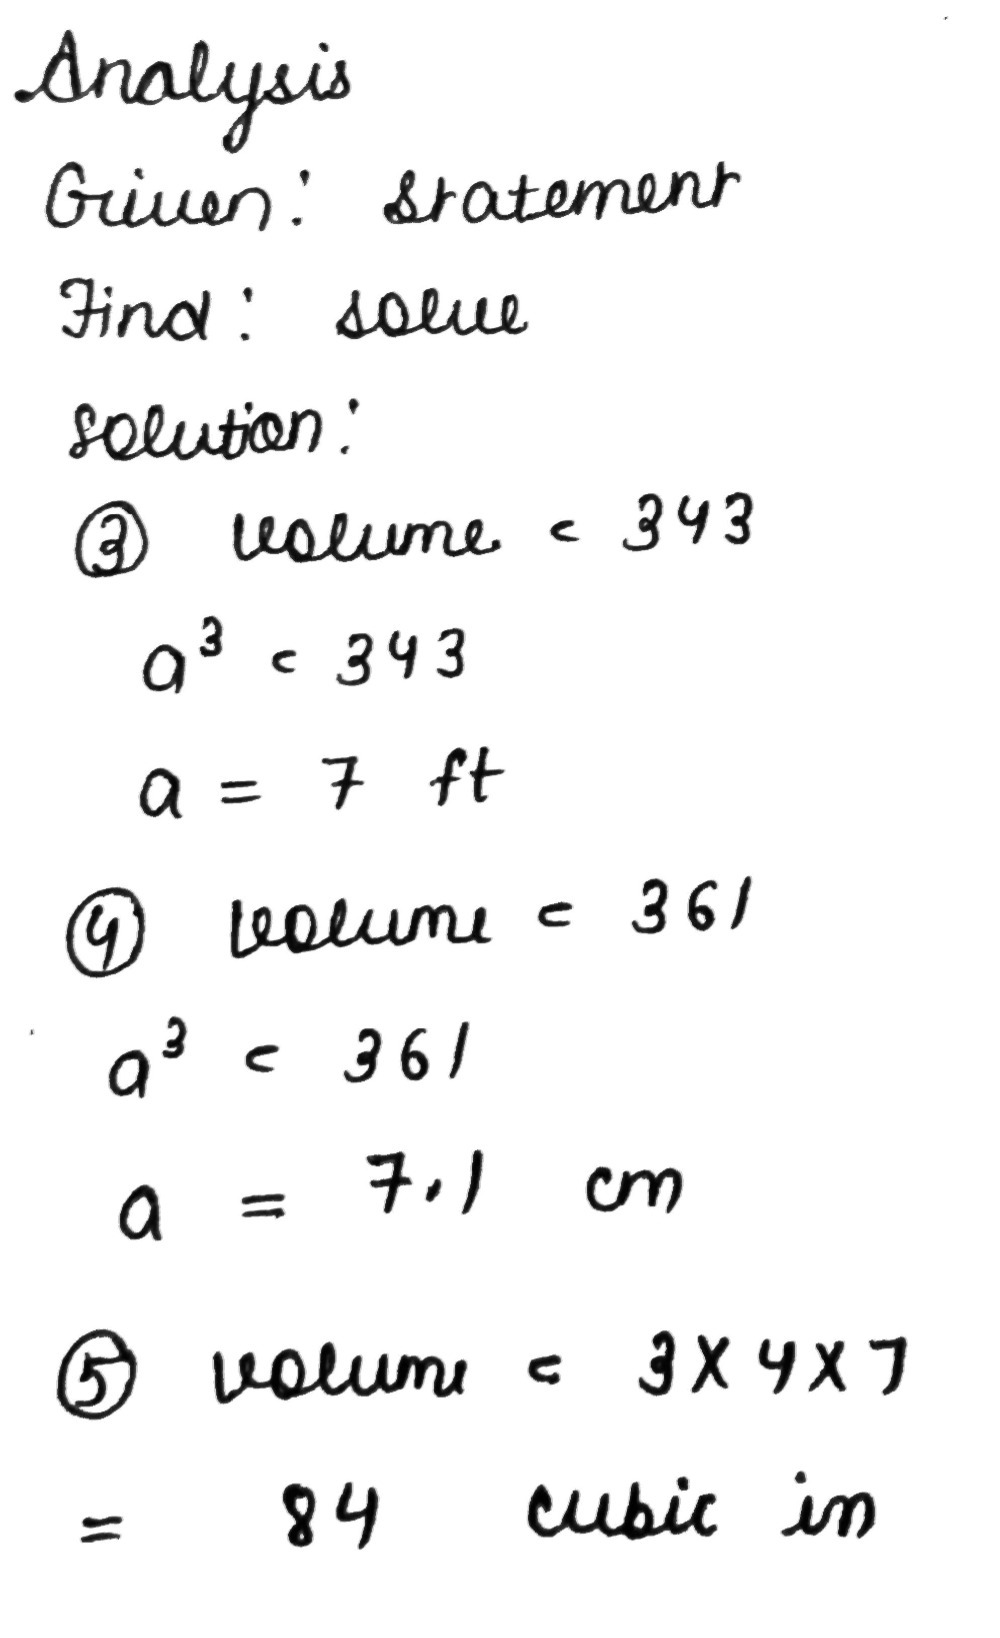 Analysis
Given: statement
Find: solve
Solution:
③ volume = 343
a³ = 343
a = 7 ft
④ volume = 361
a³ = 361
a = 7.1 cm
⑤ volume = 3×4×7
= 84 cubic in